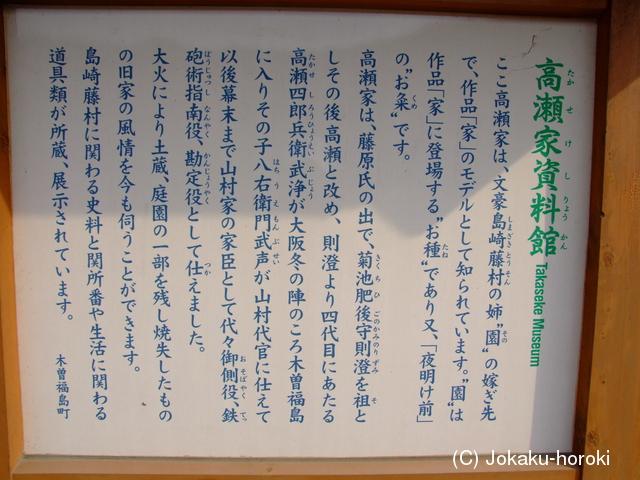 高瀬家資料館
たかせけしりょうかん
Takaseke Museum
ここ高瀬家は、文豪島崎藤村の姉"園"の嫁ぎ先
で、作品「家」のモデルとして知られています。"園"は
作品「家」に登場する"お種"であり又、「夜明け前」
の"お粂"です。
高瀬家は、藤原氏の出で、菊池肥後守則澄を祖と
しその後高瀬と改め、則澄より四代目にあたる
高瀬四郎兵衛武浄が大阪冬の陣のころ木曽福島
に入りその子八右衛門武声が山村代官に仕えて
以後幕末まで山村家の家臣として代々御側役、鉄
砲術指南役、勘定役として仕えました。
大火により土蔵、庭園の一部を残し焼失したもの
の旧家の風情を今も伺うことができます。
島崎藤村に関わる史料と関所番や生活に関わる
道具類が所蔵、展示されています。
木曽福島町
(C) Jokaku-horoki